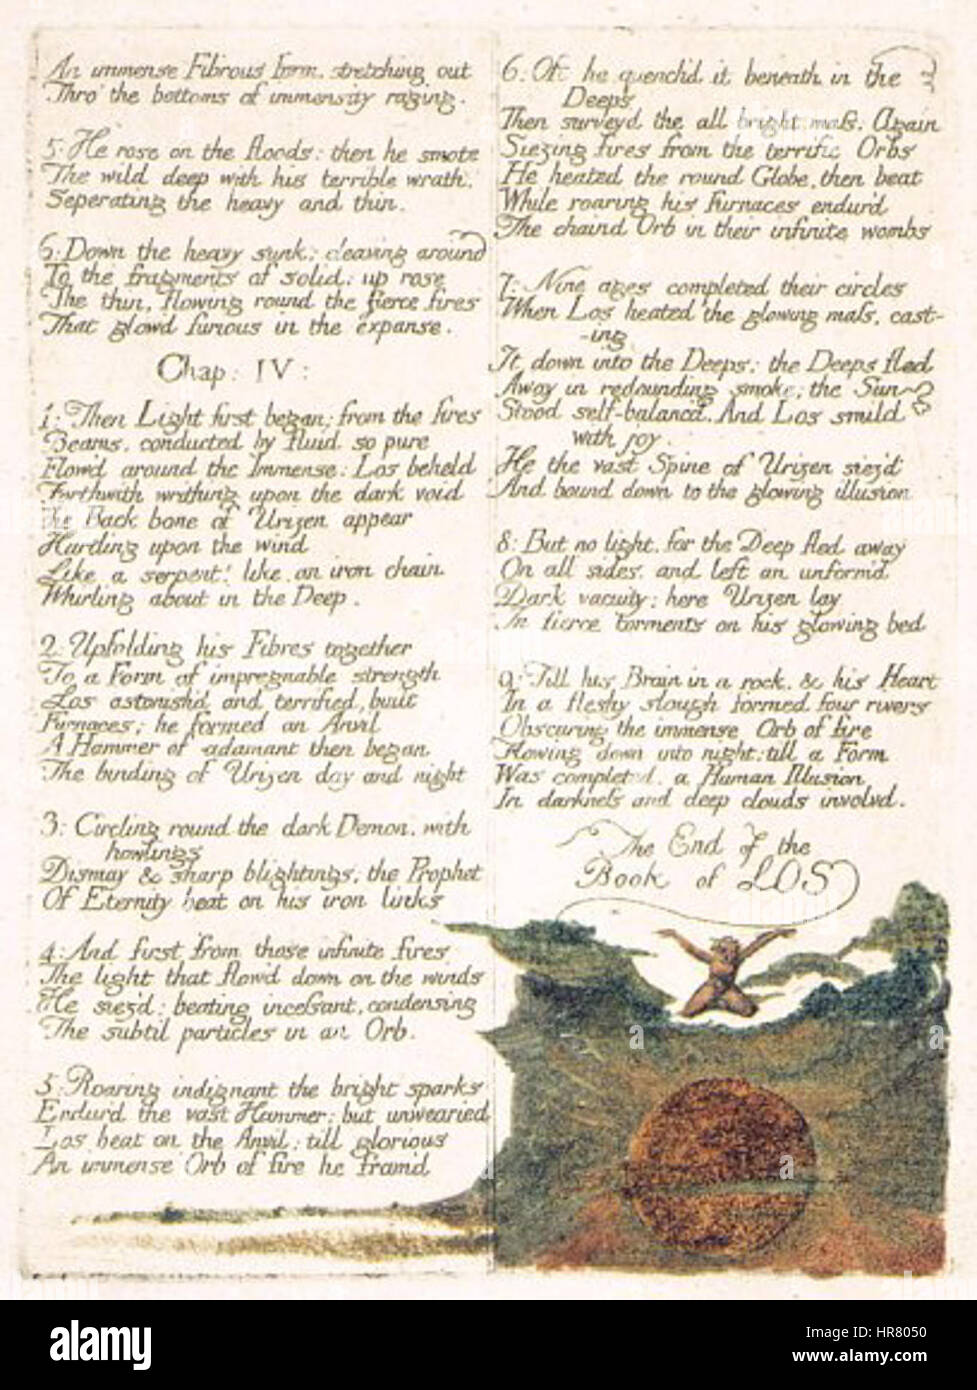 An immense Fibrous form, stretching out
Thro' the bottoms of immensity raging.
5: He rose on the floods: then he smote
The wild deep with his terrible wrath,
Seperating the heavy and thin.
6: Down the heavy sunk; cleaving around
To the fragments of solid: up rose
The thin, flowing round the fierce fires
That glowd furious in the expanse.
Chap: IV:
1: Then Light first began; from the fires
Beams, conducted by fluid so pure
Flowd around the Immense: Los beheld
Forthwith writhing upon the dark void
The Back bone of Urizen appear
Hurtling upon the wind
Like a serpent! like an iron chain
Whirling about in the Deep.
2: Upfolding his Fibres together
To a Form of impregnable strength
Los astonish'd and terrified, built
Furnaces; he formed an Anvil
A Hammer of adamant then began
The binding of Urizen day and night
3: Circling round the dark Demon, with
howlings
Dismay & sharp blightings, the Prophet
Of Eternity beat on his iron links
4: And first from those infinite fires
The light that flow'd down on the winds
He siez'd; beating incessant, condensing
The subtil particles in an Orb.
5: Roaring indignant the bright sparks
Endur'd the vast Hammer; but unwearied
Los beat on the Anvil; till glorious
An immense Orb of fire he fram'd
6: Oft he quench'd it beneath in the
Deeps
Then survey'd the all bright mass. Again
Siezing fires from the terrific Orbs
He heated the round Globe, then beat
While roaring his Furnaces endur'd
The chaind Orb in their infinite wombs
7: Nine ages completed their circles
When Los heated the glowing mass, cast-
-ing
It down into the Deeps: the Deeps fled
Away in redounding smoke; the Sun
Stood self-balanc'd. And Los smild
with joy.
He the vast Spine of Urizen siez'd
And bound down to the glowing illusion
8: But no light, for the Deep fled away
On all sides, and left an unform'd
Dark vacuity: here Urizen lay
In fierce torments on his glowing bed
9: Till his Brain in a rock, & his Heart
In a fleshy slough formed four rivers
Obscuring the immense Orb of fire
Flowing down into night: till a Form
Was completed, a Human Illusion
In darkness and deep clouds involvd.
The End of the
Book of LOS
alamy
Image ID: HR8050
www.alamy.com